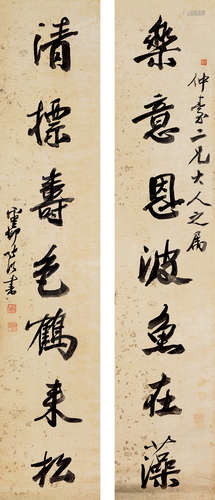 仲臺二兄大人之屬
樂意恩波魚在藻
清標壽色鶴來松
書